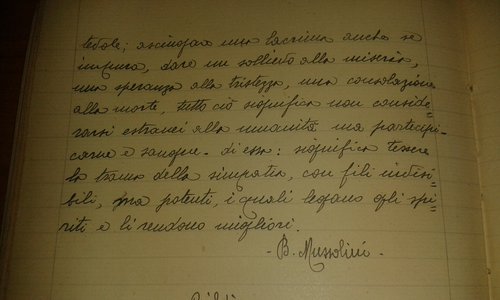 tevole; asciugare una lacrima anche se
impura, dare un sollievo alla miseria,
una speranza alla tristezza, una consolazione
alla morte, tutto ciò significa non conside-
rarsi estranei alla umanità ma partecipi
carne e sangue di essa: significa tessere
la trama della simpatia, con fili invisi-
bili, ma potenti, i quali legano gli spi-
riti e li rendono migliori.
- B. Mussolini -